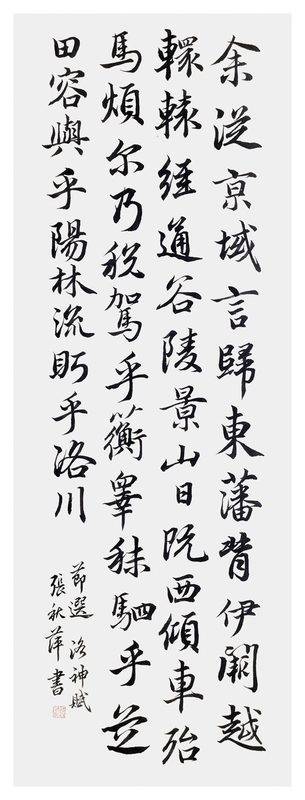 余從京域言歸東藩背伊闕越
轘轅經通谷陵景山日旣西傾車殆
馬煩尔乃税駕乎蘅皋秣駟乎芝
田容與乎陽林流眄乎洛川
節選洛神賦
張秋萍書